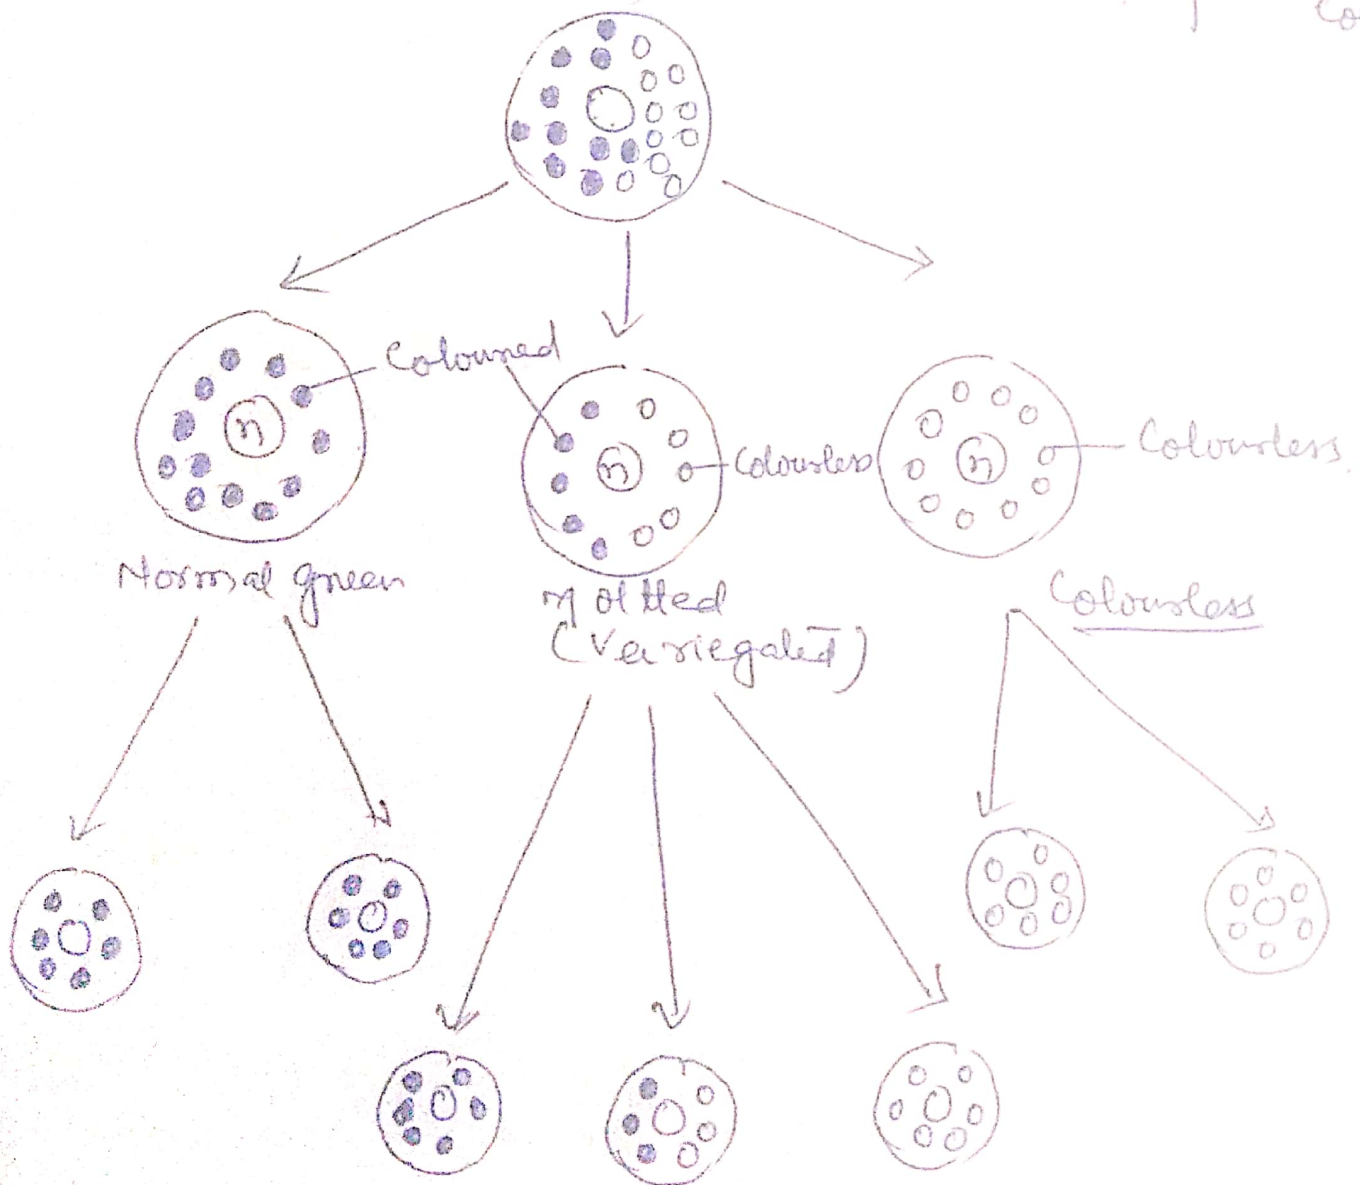 Co
Coloured
n
n
n
Colourless
Colourless
Normal green
Mottled
(Variegated)
Colourless